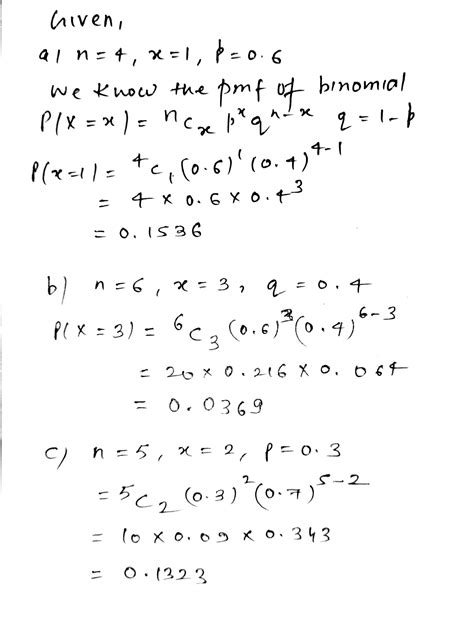 Given,
a) n = 4, x = 1, p = 0.6
We know the pmf of binomial
P(X = x) = ⁿCₓ pˣ qⁿ⁻ˣ q = 1 - p
P(x = 1) = ⁴C₁ (0.6)¹ (0.4)⁴⁻¹
= 4 × 0.6 × 0.4³
= 0.1536
b) n = 6, x = 3, q = 0.4
P(X = 3) = ⁶C₃ (0.6)³ (0.4)⁶⁻³
= 20 × 0.216 × 0.064
= 0.0369
c) n = 5, x = 2, p = 0.3
= ⁵C₂ (0.3)² (0.7)⁵⁻²
= 10 × 0.09 × 0.343
= 0.1323